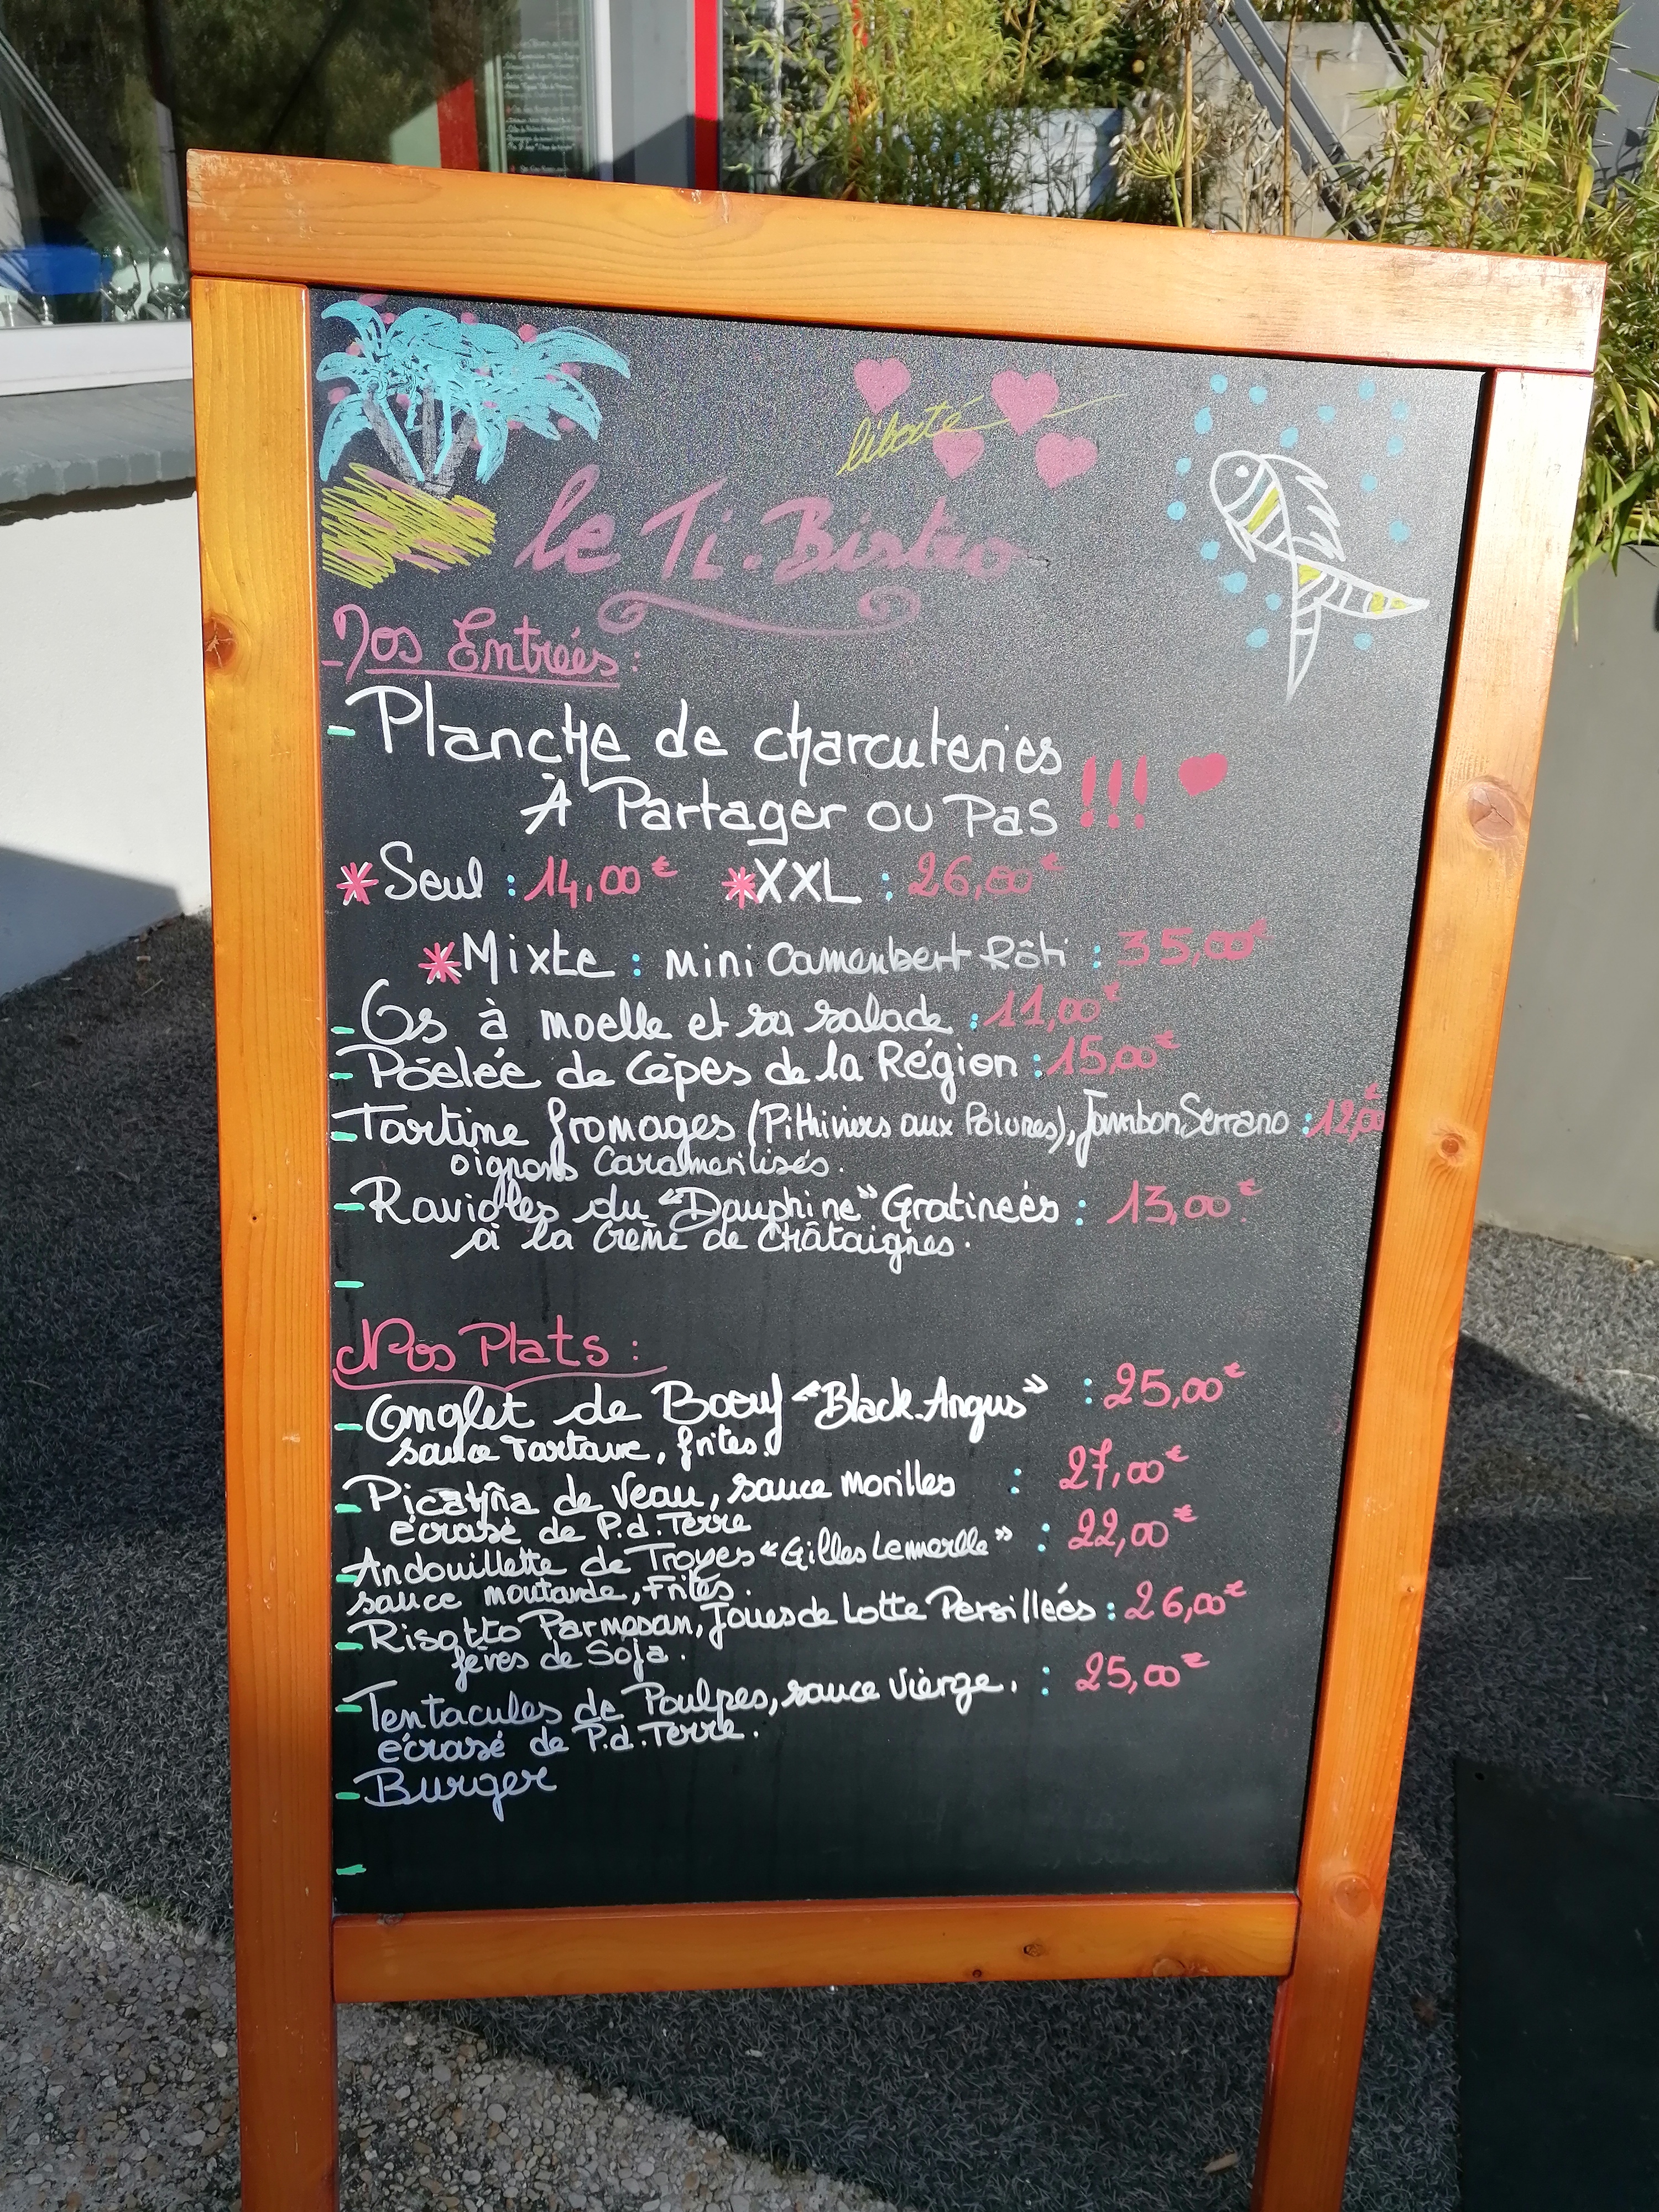 liberté
le Ti.Bistro
-Nos Entreés:
- Planche de charcuteries
À Partager ou Pas !!!
*Seul : 14,00€ *XXL : 26,00€
*Mixte : mini Camembert Rôti : 35,00€
- Os à moelle et sa salade : 11,00€
- Pôelée de Cèpes de la Région : 15,00€
- Tartine fromages (Pithiviers aux Poivres), Jambon Serrano : 12,00
oignons Caramerilisés.
- Ravioles du "Dauphine" Gratineés : 13,00€
à la Crème de Châtaignes.
-
Nos Plats :
- Onglet de Boeuf "Black.Angus" : 25,00€
sauce Tartare, frites.
- Picanña de Veau, sauce Morilles : 27,00€
écrasé de P.d.Terre
- Andouillette de Troyes "Gilles Lemerlle" : 22,00€
sauce moutarde, Frites.
- Risotto Parmesan, Joues de Lotte Persilleés : 26,00€
fèves de Soja.
- Tentacules de Poulpes, sauce Vierge. : 25,00€
écrasé de P.d.Terre.
- Burger
-